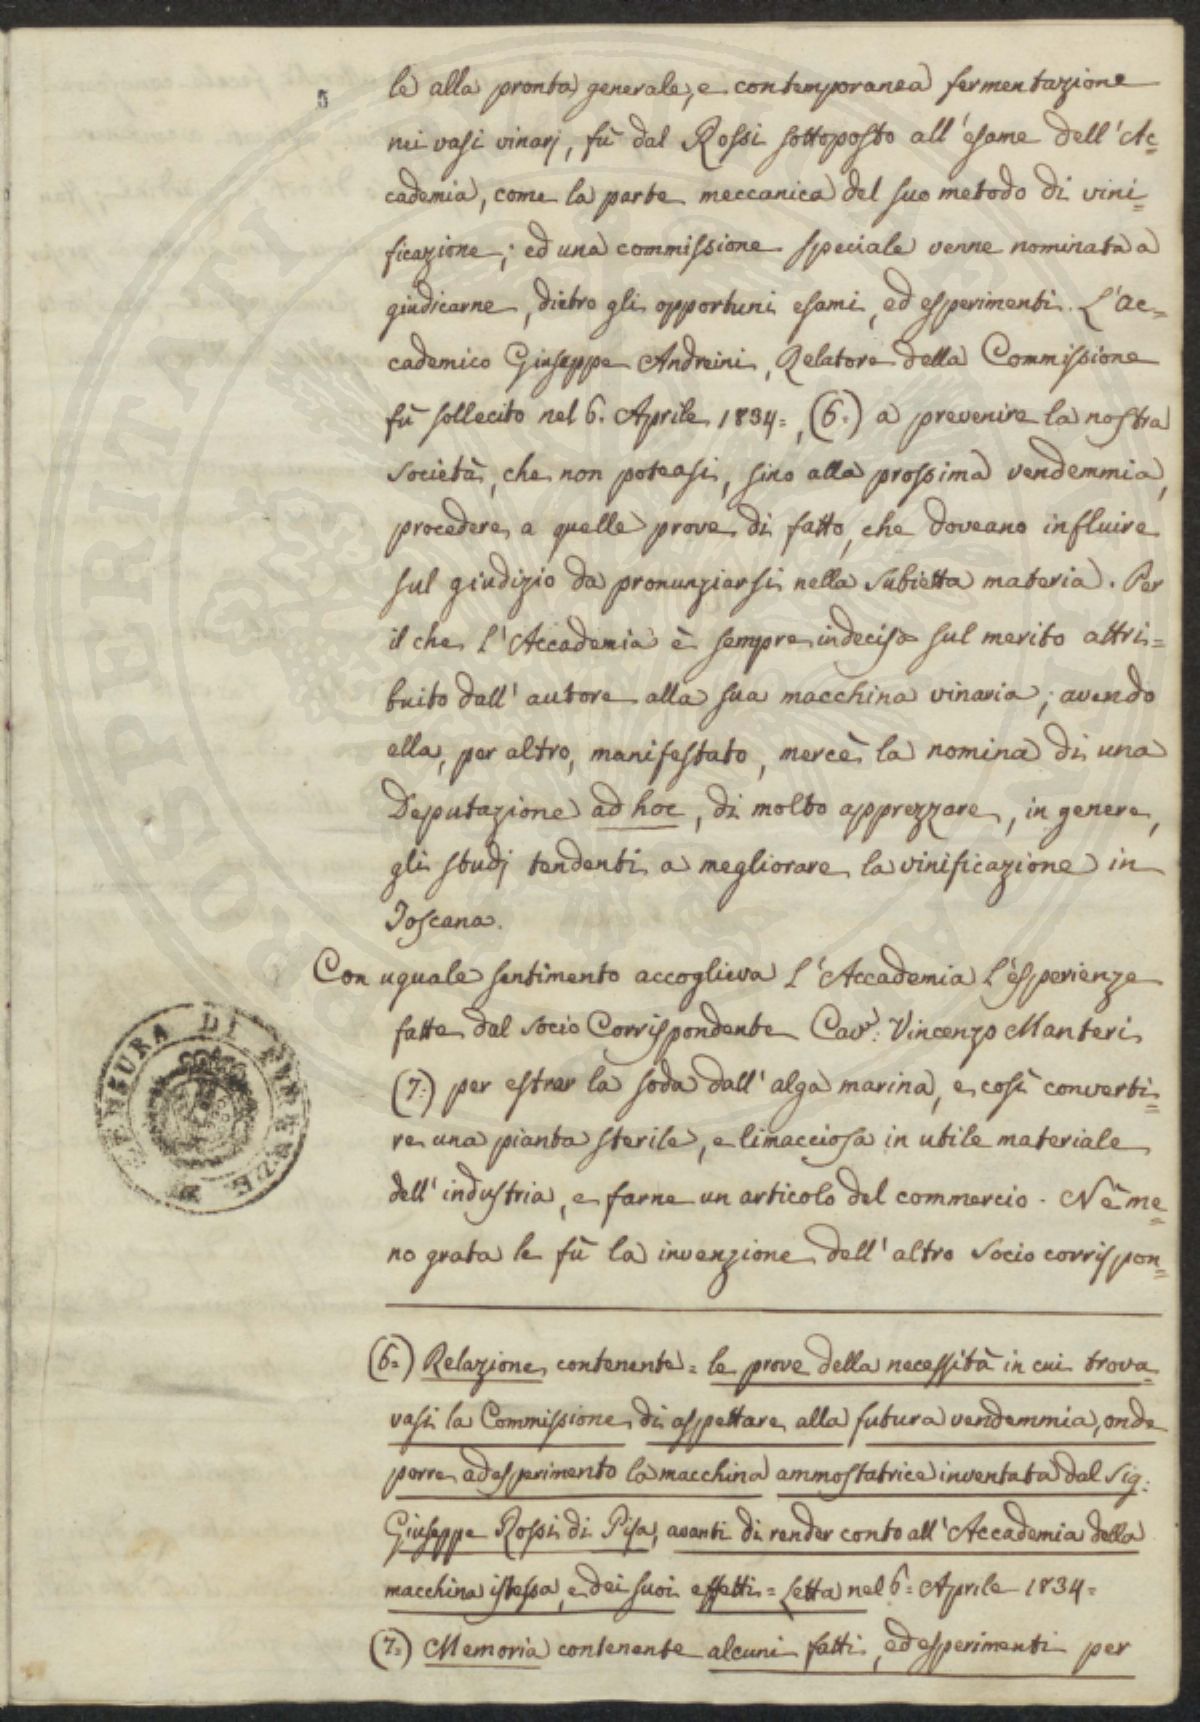 5
le alla pronta, generale, e contemporanea fermentazione
nei vasi vinarj, fù dal Rossi sottoposto all'esame dell'Ac=
cademia, come la parte meccanica del suo metodo di vini=
ficazione; ed una commissione speciale venne nominata a
giudicarne, dietro gli opportuni esami, ed esperimenti. L'Ac=
cademico Giuseppe Andreini, Relatore della Commissione
fù sollecito nel 6. Aprile 1834=, (6=) a prevenire la nostra
Società, che non poteasi, sino alla prossima vendemmia,
procedere a quelle prove di fatto, che doveano influire
sul giudizio da pronunziarsi nella subietta materia. Per
il che l'Accademia è sempre indecisa sul merito attri=
buito dall'autore alla sua macchina vinaria; avendo
ella, per altro, manifestato, mercè la nomina di una
Deputazione ad hoc, di molto apprezzare, in genere,
gli studj tendenti a megliorare la vinificazione in
Toscana.
Con uguale sentimento accoglieva l'Accademia l'esperienze
fatte dal Socio Corrispondente Cav.: Vincenzo Manteri
(7=) per estrar la soda dall'alga marina, e così converti=
re una pianta sterile, e limacciosa in utile materiale
dell'industria, e farne un articolo del commercio. Nè me=
no grata le fù la invenzione dell'altro Socio corrispon=
(6=) Relazione contenente= le prove della necessità in cui trova=
vasi la Commissione di aspettare alla futura vendemmia, onde
porre ad esperimento la macchina ammostatrice inventata dal Sig:
Giuseppe Rossi di Pisa, avanti di render conto all'Accademia della
macchina istessa, e dei suoi effetti= Letta nel 6= Aprile 1834=
(7=) Memoria contenente alcuni fatti, ed esperimenti per
CENSURA DI FIRENZE
PROSPERITATI